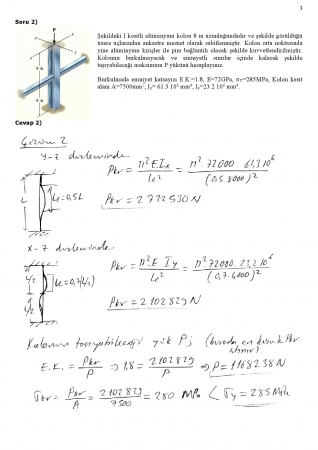 3
Soru 2)
P
4 m
4 m
Şekildeki I kesitli alüminyum kolon 8 m uzunluğundadır ve şekilde görüldüğü
üzere uçlarından ankastre mesnet olarak sabitlenmiştir. Kolon orta noktasında
yine alüminyum kirişler ile pim bağlantılı olacak şekilde kuvvetlendirilmiştir.
Kolonun burkulmayacak ve emniyetli sınırlar içinde kalacak şekilde
taşıyabileceği maksimum P yükünü hesaplayınız.
Burkulmada emniyet katsayısı E.K.=1.8, E=72GPa, σY=285MPa, Kolon kesit
alanı A=7500mm², Ix= 61.3 10⁶ mm⁴, Iy=23.2 10⁶ mm⁴.
Cevap 2)
Çözüm 2
y-z düzleminde
Pkr = π²EIx / Le² = π². 72000. 61,3 10⁶ / (0,5.8000)²
L
Le=0,5L
Pkr = 2722530 N
x-z düzleminde
Pkr = π²E Iy / Le² = π² 72000. 23,2 10⁶ / (0,7.4000)²
L/2
L/2
Le=0,7(L/2)
Pkr = 2102829 N
Kolonun taşıyabileceği yük P; (burada en küçük Pkr
alınır)
E.K. = Pkr / P ⇒ 1,8 = 2102829 / P ⇒ P = 1168238 N
σkr = Pkr / A = 2102829 / 7500 = 280 MPa < σy = 285 MPa